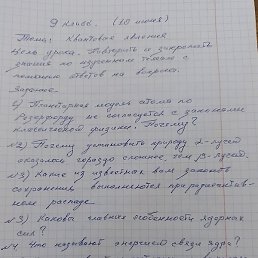 9 класс. (10 июня)
Тема: Квантовые явления
Цель урока. Повторить и закрепить
знания по изученным темам с
помощью ответов на вопросы.
Задание
1) Планетарная модель атома по
Резерфорду не согласуется с законами
классической физики. Почему?
№2) Почему установить природу α-лучей
оказалось гораздо сложнее, чем β-лучей.
№3) Какие из известных вам законов
сохранения выполняются при радиоактив-
ном распаде.
№3) Каковы главные особенности ядерных
сил?
№4 Что называют энергией связи ядра?